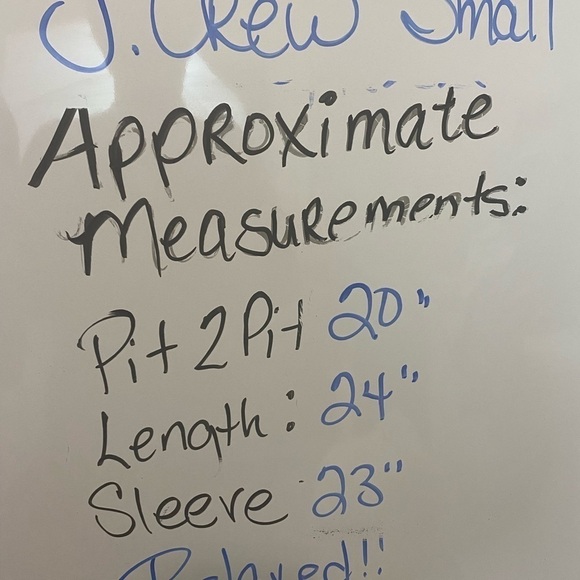 J. CREW Small
Approximate
Measurements:
Pit 2 Pit 20"
Length: 24"
Sleeve 23"
Relaxed!!